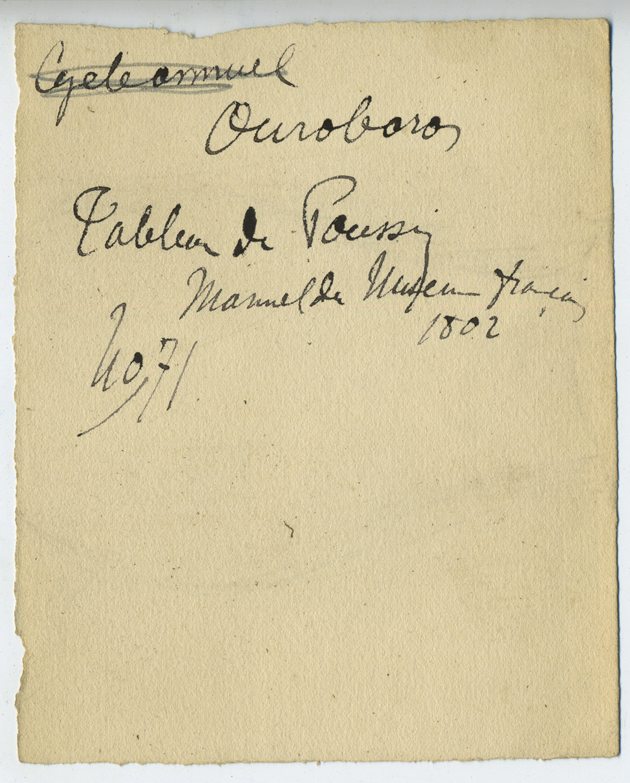 Cycle annuel
Ouroboros
Tableau de Poussin
Manuel du Museum français
1802
No 71